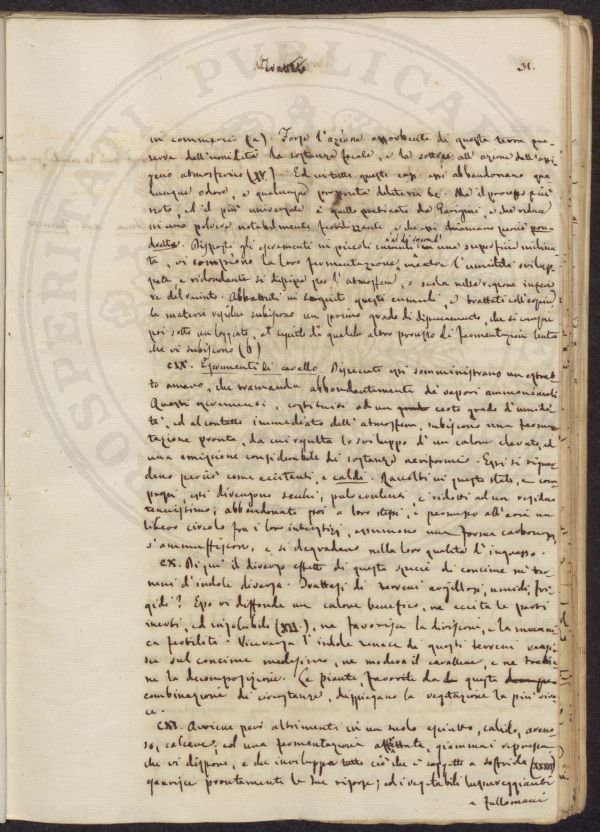 31.
in commercio (a). Forse l'azione assorbente di questa terra pre-
serva dall'umidità la sostanza fecale, e la sottrae all'azione dell'ossi
geno atmosferico (XV). Ed in tutti questi casi essi abbandonano qua
lunque odore, e qualunque proprietà deleteria &c. Ma il processo più
noto, ed il più universale è quello praticato da Parigini, e che riduce
in una polvere notabilmente fertilizzante, e che essi chiamano perciò pou-
drette. Disposti gli escrementi in piccoli cumuli in una superficie inclina-
ta, vi compiono la loro fermentazione, mentre l'umidità svilup-
pata, e ridondante si dissipa per l'atmosfera, o scola nella regione inferio
re del recinto. Abbattuti in seguito questi cumuli, e trattati coll'
le materie residue subiscono un primo grado di disseccamento, che si compie
poi sotto un loggiato, al seguito di qualche altro processo di fermentazione lenta
che vi subiscono (b)
CIX. Escrementi di cavallo. Disseccati essi somministrano un estrat-
to amaro, che tramanda abbondantemente de' vapori ammoniacali
Questi escrementi, costituiti ad un certo grado d'umidi-
tà, ed al contatto immediato dell'atmosfera, subiscono una fermen
tazione pronta, da cui risulta lo sviluppo d'un calore elevato, ed
una emissione considerabile di sostanze aeriformi. Essi si
dono perciò come eccitanti, e caldi. Raccolti in questo stato, e com
pressi, essi divengono secchi, pulverulenti, e ridotti ad un residuo
tenuissimo; abbandonati poi a loro stessi, e permesso all'aria un
libero circolo fra i loro interstizi, assumono una forma carbonosa,
s'ammuffiscono, e si degradano nella loro qualità d'ingrasso.
CX. Di qui il diverso effetto di questa specie di concime ne' ter-
reni d'indole diversa. Trattasi di terreni argillosi, umidi, fri
gidi? Esso vi diffonde un calore benefico, ne eccita le parti
inerti, ed insolubili (XII.), ne favorisce la divisione, e la meccani
ca fertilità. Viceversa l'indole tenace di questi terreni reagi-
sce sul concime medesimo, ne modera il calore, e ne trattie
ne la decomposizione. Le piante, favorite da questa
combinazione di circostanze, dispiegano la vegetazione la più viva
ce.
CXI. Avviene però altrimenti in un suolo asciutto, calido, areno
so, calcareo, ed una fermentazione affrettata, giammai repressa
che vi dispone, e che inviluppa tutto ciò che è soggetto a soffrirla (XXXIX)
esaurisce prontamente le sue risorse; ed i vegetabili lussureggianti